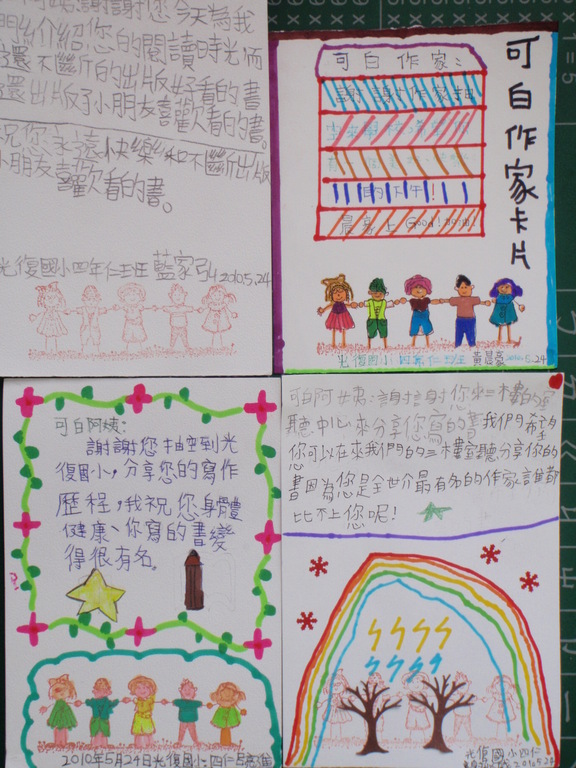 阿姑謝謝您今天為我
們介紹您的閱讀時光而
還不斷的出版好看的書
還出版了小朋友喜歡看的書。
祝您永遠快樂和不斷出版
小朋友喜歡看的書。
光復國小四年仁班 藍家弘 2010.5.24
可白作家卡片
可白作家:
謝謝作家抽
的下午!
最高上Good!
光復國小四年仁班 黃晨豪 2010.5.24
可白阿姨:
謝謝您抽空到光
復國小,分享您的寫作
歷程,我祝您身體
健康、你寫的書變
得很有名。
2010年5月24日光復國小四仁
可白阿姨:謝謝您來三樓的視
聽中心來分享您寫的書我們希望
你可以在來我們的三樓視聽分享你的
書因為您是全世介最有名的作家誰都
比不上您呢!
光復國小四仁
2010.5.24